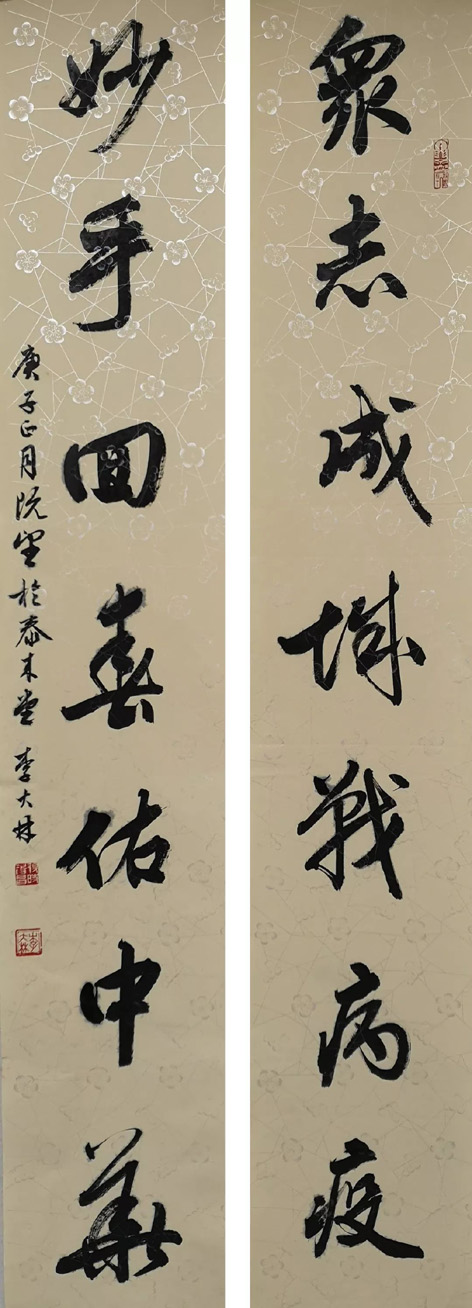 衆志成城戰病疫
妙手回春佑中華
庚子正月既望於泰木堂 李大林